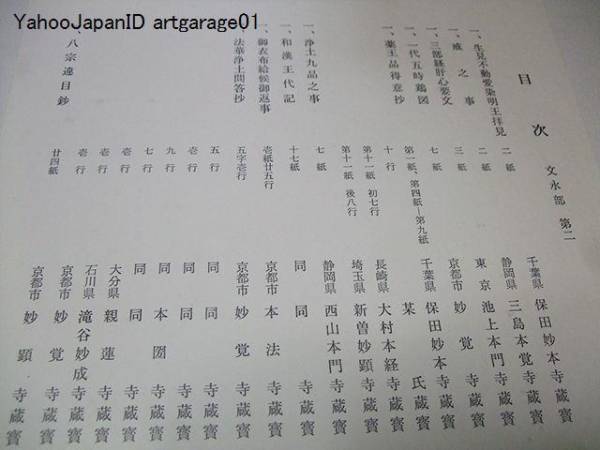 YahooJapanID artgarage01
目次 文永部 第二
一、生見不動愛染明王拝見 二紙 千葉県 保田妙本寺蔵寶
二紙 静岡県 三島本覚寺蔵寶
一、戒之事 三紙 東京 池上本門寺蔵寶
一、三部経肝心要文 七紙 京都市 妙覚寺蔵寶
一、一代五時鶏図 第一紙、第四紙―第九紙 千葉県 保田妙本寺蔵寶
一、薬王品得意抄 十行 某氏蔵寶
第十一紙 初七行 長崎県 大村本経寺蔵寶
第十一紙 後八行 埼玉県 新曽妙顕寺蔵寶
一、浄土九品之事 七紙 静岡県 西山本門寺蔵寶
一、和漢王代記 十七紙 同 同 寺蔵寶
一、御衣布給候御返事 壱紙廿五行 京都市 本法寺蔵寶
一、法華浄土問答抄 五字壱行 京都市 妙覚寺蔵寶
五行 同 同 寺蔵寶
七行 同 同 寺蔵寶
九行 同 本圀寺蔵寶
七行 同 同 寺蔵寶
壱行 大分県 親蓮寺蔵寶
壱行 石川県 滝谷妙成寺蔵寶
壱行 京都市 妙覚寺蔵寶
一、八宗違目鈔 廿四紙 京都市 妙顕寺蔵寶